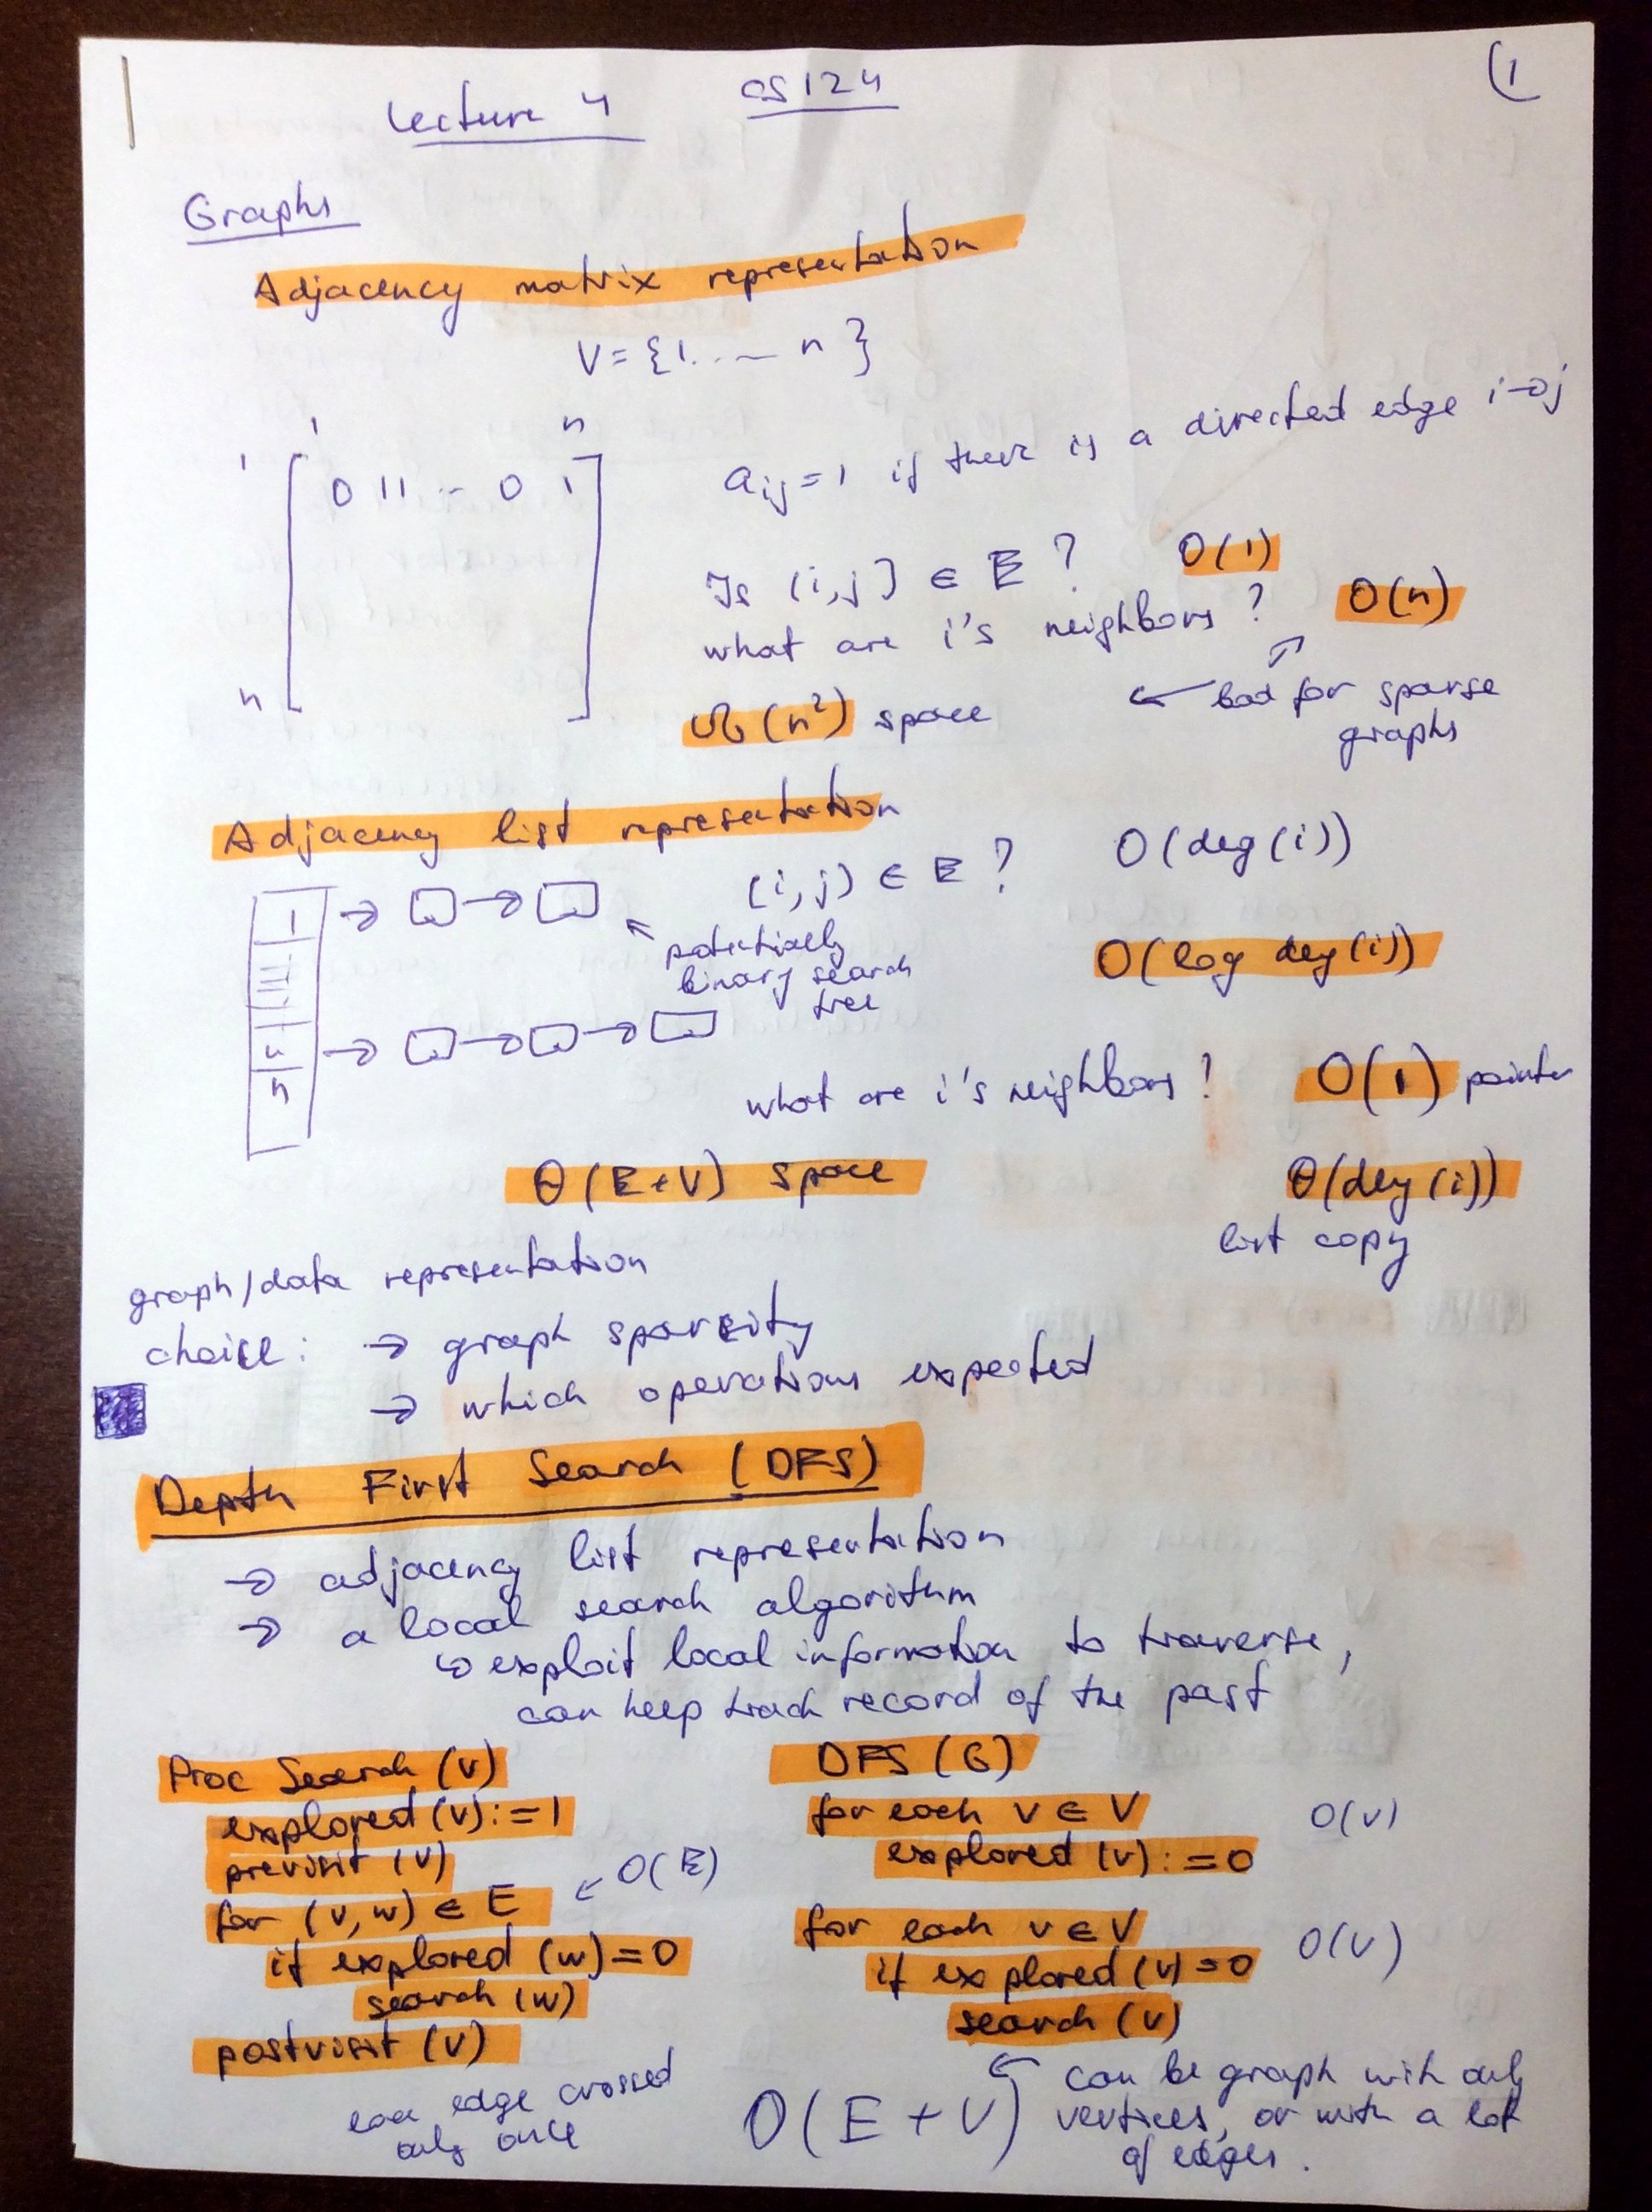 Lecture 4 CS124
(1
Graphs
Adjacency matrix representation
V = {1 . . — n }
1 n
1 0 1 1 . - 0 1
n
aij = 1 if there is a directed edge i→j
Is (i,j) ∈ E ? O(1)
what are i's neighbors ? O(n)
(n²) space ← bad for sparse
graphs
Adjacency list representation
(i,j) ∈ E ? O(deg(i))
1 → □ → □
potentially
binary search
tree
O(log deg(i))
→ □ → □ → □
n
what are i's neighbors ? O(1) pointer
Θ(E+V) space Θ(deg(i))
list copy
graph/data representation
choice: → graph sparsity
→ which operations expected
Depth First Search (DFS)
→ adjacency list representation
→ a local search algorithm
↳ exploit local information to traverse,
can keep track record of the past
Proc Search (v)
explored (v) := 1
previsit (v)
for (v,w) ∈ E ← O(E)
if explored (w) = 0
search (w)
postvisit (v)
each edge crossed
only once
DFS (G)
for each v ∈ V O(V)
explored (v) := 0
for each v ∈ V O(V)
if explored (v) = 0
search (v)
O(E + V)
← can be graph with only
vertices, or with a lot
of edges.